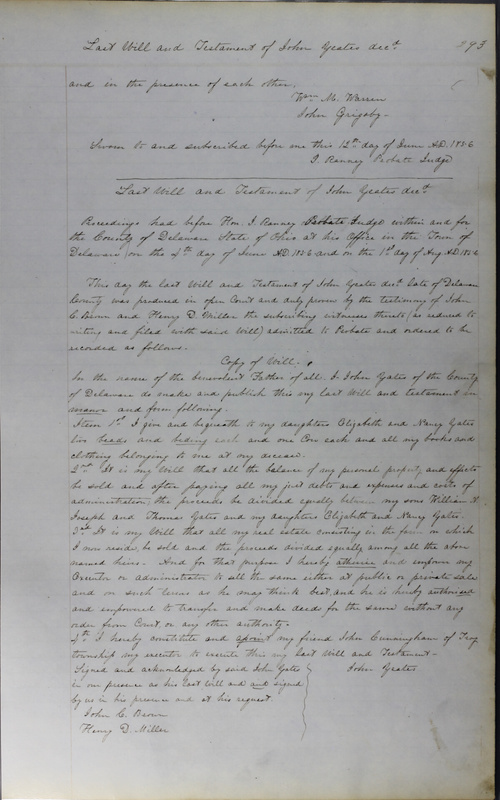 Last Will and Testament of John Yeates decd 293
and in the presence of each other.
Wm M. Warren
John Grigsby
Sworn to and subscribed before me this 12th day of June AD. 1856
I. Ranney Probate Judge
Last Will and Testament of John Yeates decd
Proceedings had before Hon. I. Ranney Probate Judge within and for
the County of Delaware State of Ohio at his Office in the Town of
Delaware on the 4th day of June AD. 1856 and on the 1st day of Aug. AD. 1856
This day the last Will and Testament of John Yeates decd late of Delaware
County was produced in open Court and duly proven by the testimony of John
C. Brown and Henry D. Miller the subscribing witnesses thereto (as reduced to
writing and filed with said Will) admitted to Probate and ordered to be
recorded as follows.
Copy of Will.
In the name of the benevolent Father of all. I. John Yates of the County
of Delaware do make and publish this my last Will and testament in
manor and form following.
Item 1st I give and bequeath to my daughters Elizabeth and Nancy Yates
two beads and beding each and one Cow each and all my books and
clothing belonging to me at my decease.
2nd It is my Will that all the balance of my personal property and effects
be sold and after paying all my just debts and expenses and costs of
administration, the proceeds be divided equally between my sons William
Joseph and Thomas Yates and my daughters Elizabeth and Nancy Yates.
3rd It is my Will that all my real estate consisting in the farm on which
I now reside, be sold and the proceeds divided equally among all the above
named heirs. And for that purpose I hereby athorise and empower my
Executor or administrator to sell the same either at public or private sale
and on such terms as he may think best, and he is hereby authorised
and empowered to transfer and make deed for the same without any
order from Court or any other authority.
4th I hereby constitute and apoint my friend John Cunningham of Troy
township my executor to execute this my last Will and Testament
Signed and acknowledged by said John Yates John Yeates
in our presence as his last will and and signed
by us in his presence and at his request.
John C. Brown
Henry D. Miller